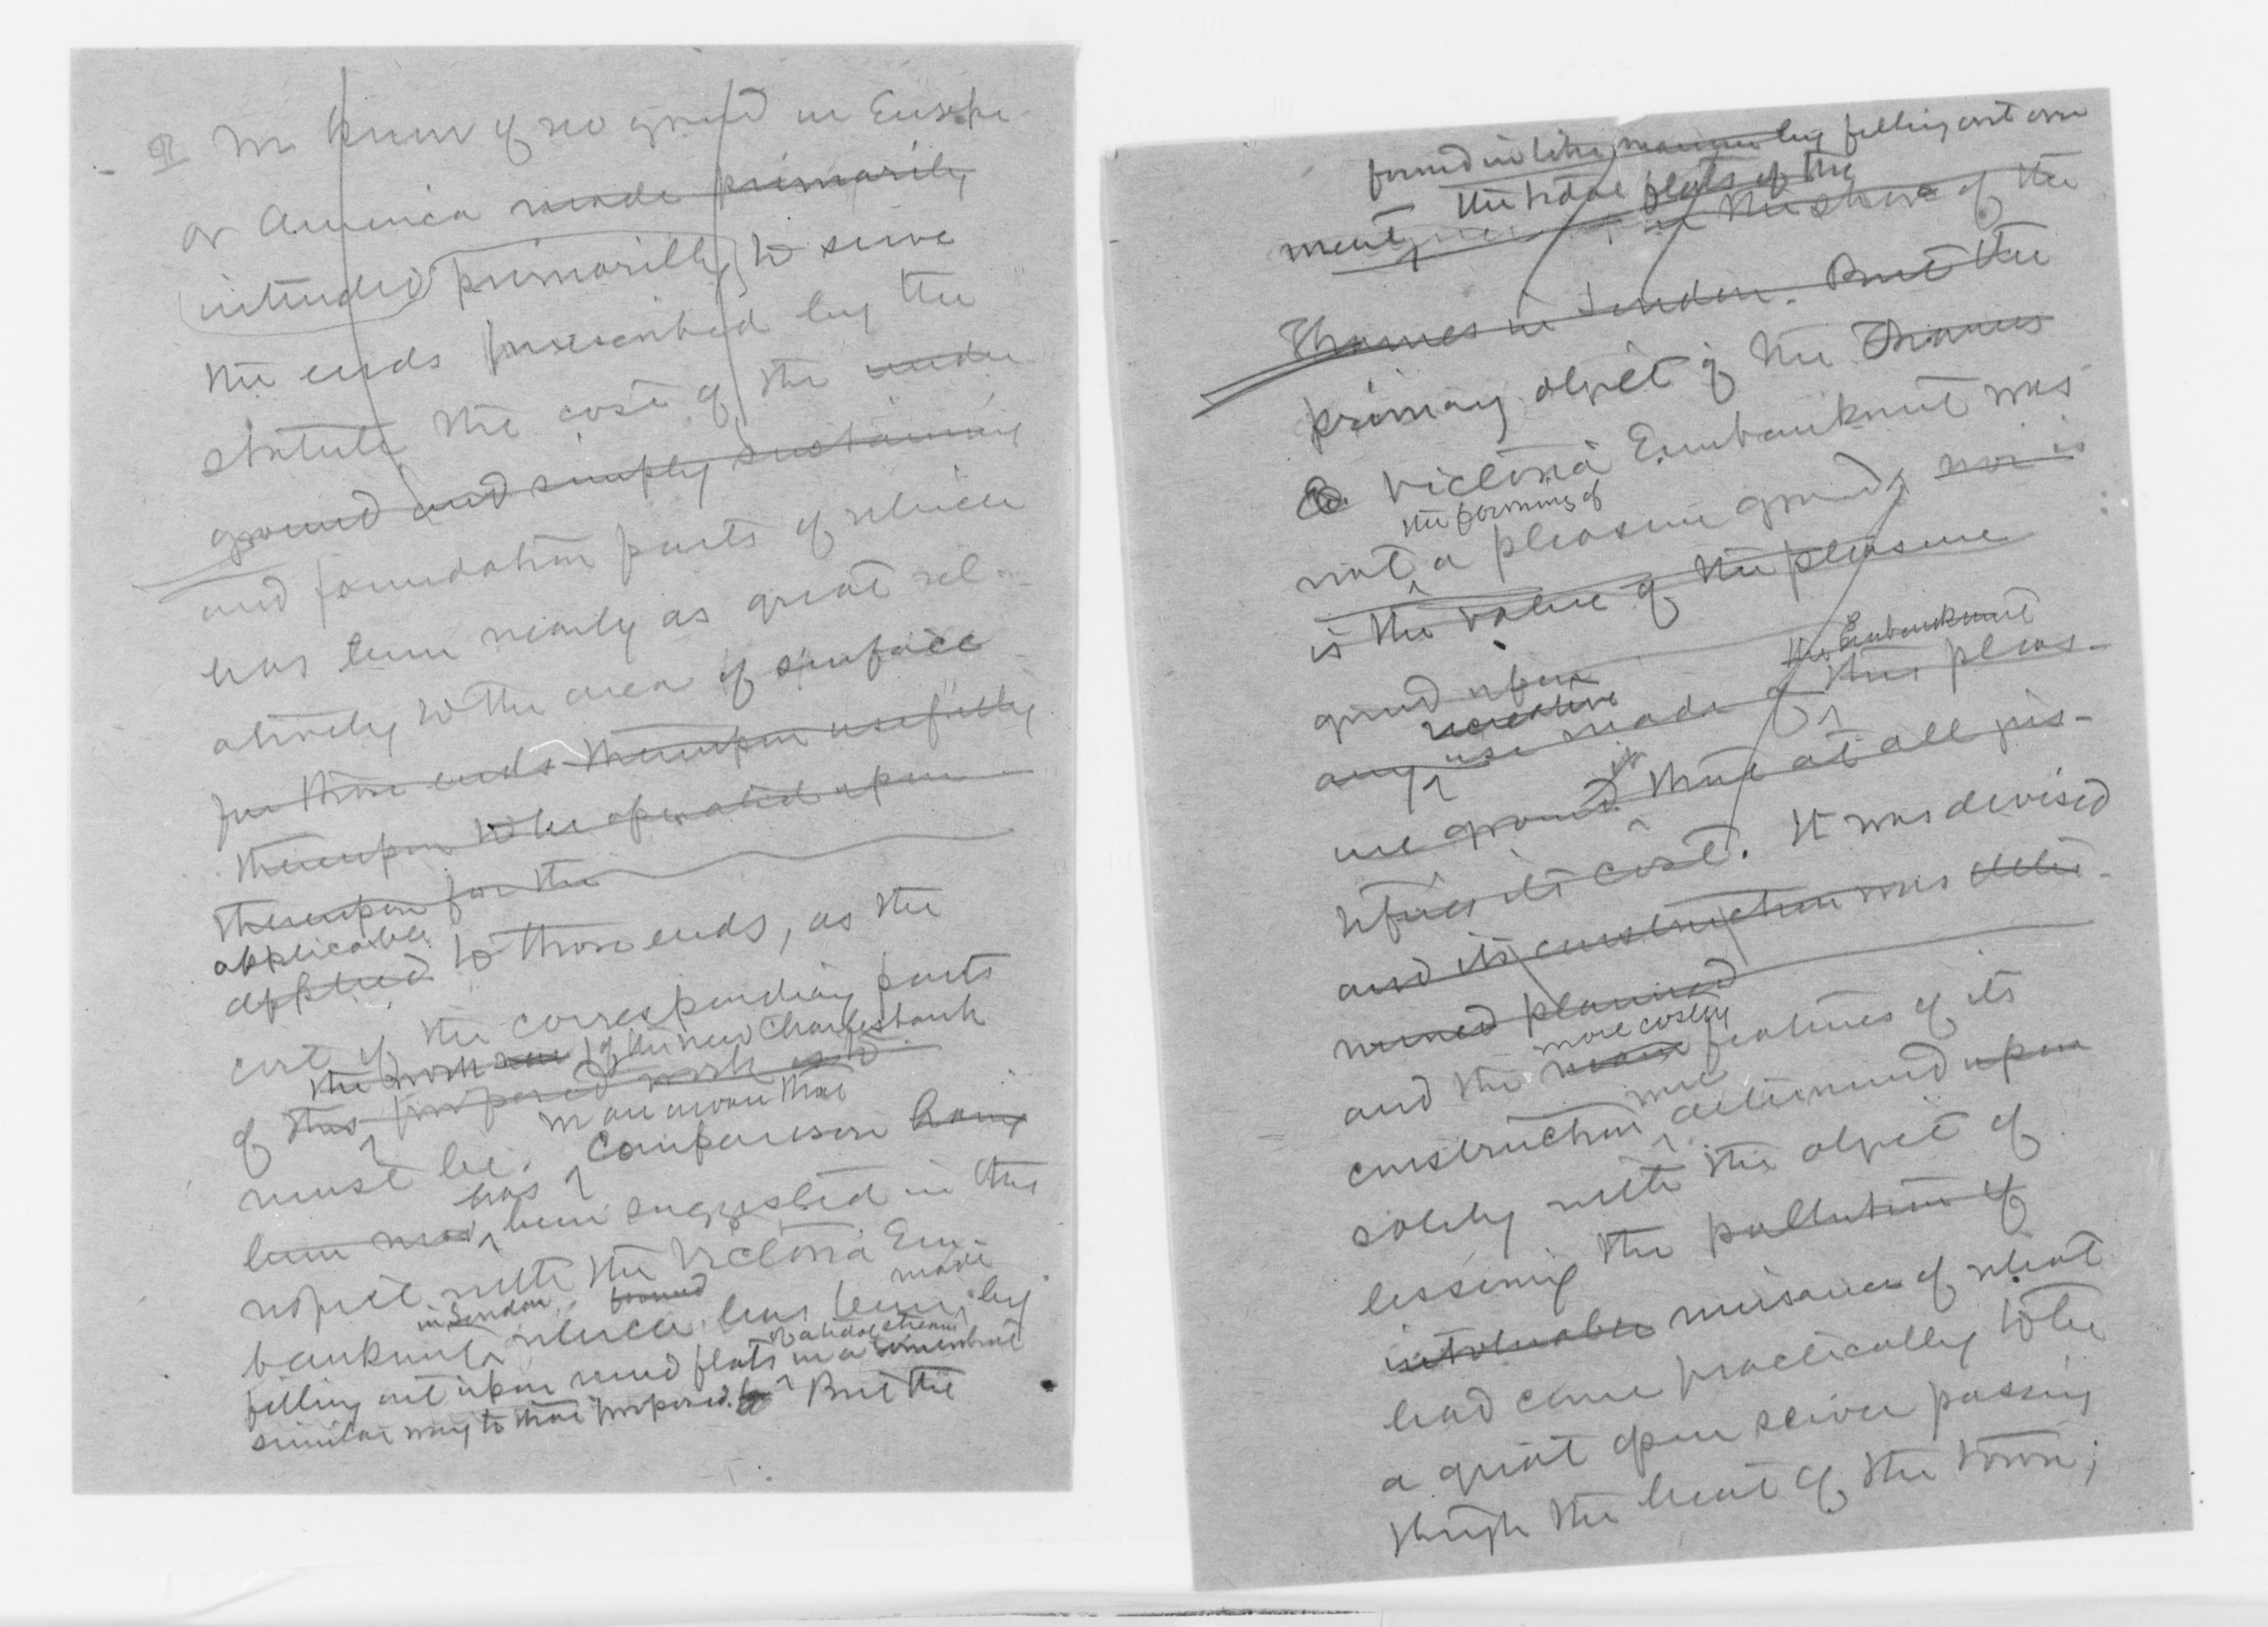 We know of no ground in Europe
or America made primarily
intended primarily to serve
the ends prescribed by the
statute the cost of the under
ground and simply sustaining
and foundation parts of which
has been nearly as great rel-
atively to the area of surface
for those ends thereupon usefully
thereupon to be operated upon
thereupon for the
applicable
applied to those ends, as the
cost of the corresponding parts
the work of the new Charlesbank
of this proposed work
must be. We are aware that comparison having
been made has been suggested in this
respect with the Victoria Em-
bankment in London, which has been formed made by
filling out upon mud flats of a tidal stream in a somewhat
similar way to that proposed. But the
formed in like manner by filling out over
the tidal flats of the
ment, the shore of the
Thames in London. But the
primary object of the Thames
Victoria Embankment was
the forming of
not a pleasure ground, nor is
is the value of the pleasure
ground upon
recreative the Embankment
any use made of this pleas-
ure ground that at all jus-
tifies its cost. It was devised
and its construction was deter-
mined planned
more costly
and the main features of its
construction were determined upon
solely with the object of
lessening the pollution of
intolerable nuisance of what
had come practically to be
a great open sewer passing
through the heart of the town;